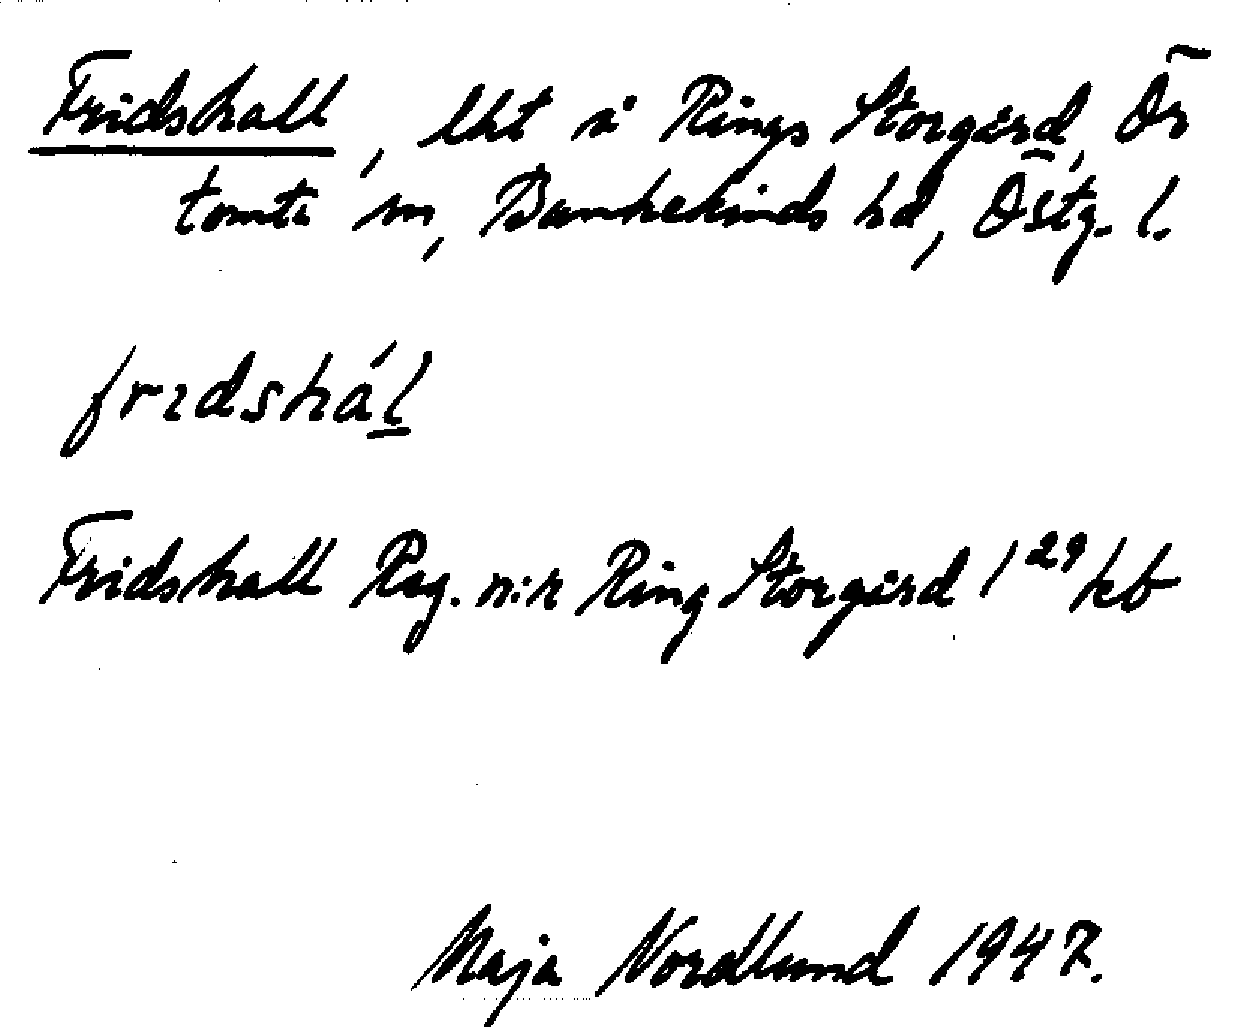 Fridshall, lht å Rings Storgård, Ör
tomta sn, Bankekinds hd, Östg. l.
frıdshá́l
Fridshall Reg. n:r Ring Storgård 1²⁹ kb
Maja Nordlund 1947.